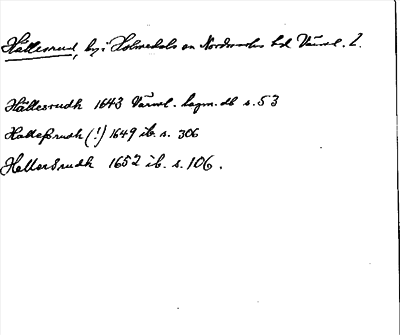 Hällesrud, by i Holmedals sn Nordmarks hd Värml. l.
Hällesrudh 1643 Värml. lagm. db s. 53
Halleßrudh (!) 1649 ib. s. 306
Hellersrudh 1652 ib. s. 106.